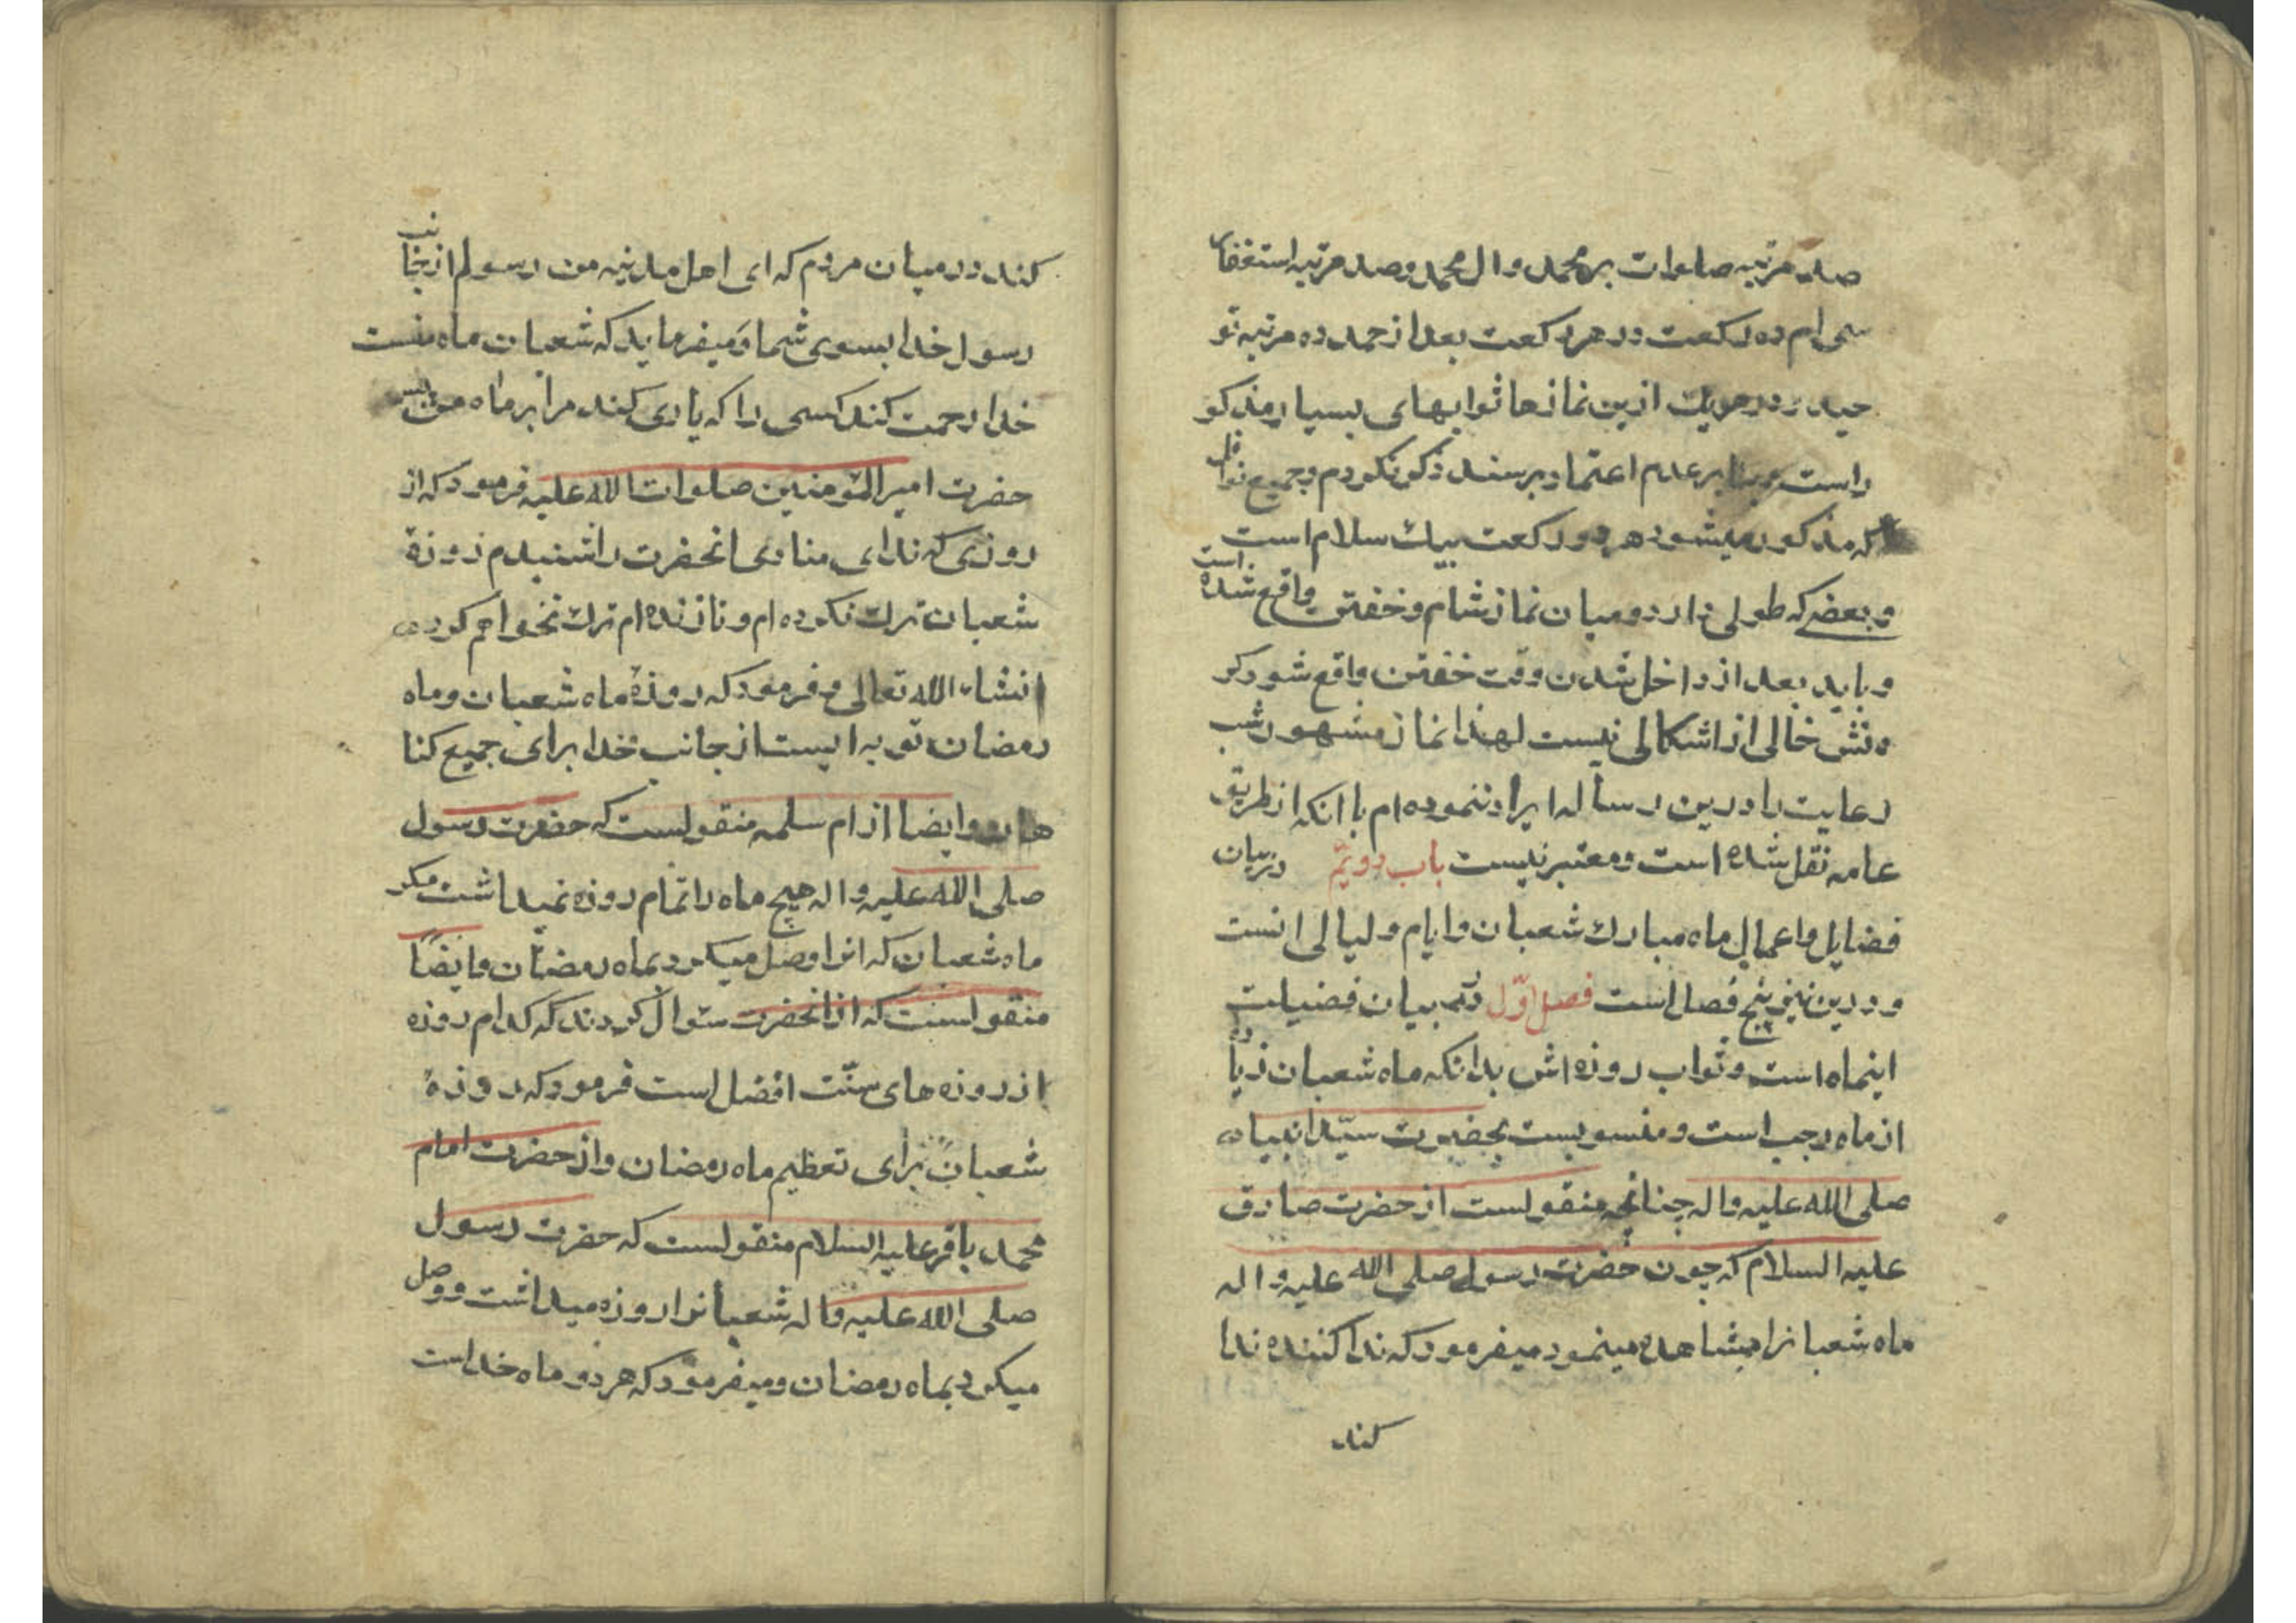 صد مرتبه صلوات بر محمد و ال محمد و صد مرتبه استغفار
سی ام ده رکعت در هر رکعت بعد از حمد ده مرتبه تو
حید و در هریک ازین نمازها ثوابهای بسیار مذکو
راست و بنا بر عدم اعتماد بر سند ذکر نکردم و جمیع نوافل
که مذکور میشود هر دو رکعت بیک سلام است
و بعضی که طولی دارد و میان نماز شام و خفتن واقع شده است
و باید بعد از داخل شدن وقت خفتن واقع شود کر
دنش خالی از اشکالی نیست لهذا نماز مشهور شب
رعایت را درین رساله ایراد ننموده ام با انکه از طریق
عامه نقل شده است و معتبر نیست باب دویم در بیان
فضایل و اعمال ماه مبارک شعبان و ایام و لیالی انست
و درین نیز پنج فصل است فصل اول در بیان فضیلت
اینماه است و ثواب روزه اش بدانکه ماه شعبان زیاده
از ماه رجب است و منسوبست بحضرت سیّد انبیاء
صلی الله علیه واله چنانچه منقولست از حضرت صادق
علیه السلام که چون حضرت رسول صلی الله علیه واله
ماه شعبانرا مشاهده مینمود میفرمود که ندا کننده ندا
کند
کند در میان مردم که ای اهل مدینه من رسولم ازجانب
رسول خدا بسوی شما و میفرماید که شعبان ماه منست
خدا رحمت کند کسی را که یاری کند مرا بر ماه من پس
حضرت امیر المؤمنین صلوات الله علیه فرمود که از
روزی که ندای منادی انحضرت را شنیدم روزۀ
شعبان ترک نکرده ام و تا زنده ام ترک نخواهم کرد
انشاء الله تعالی و فرمود که روزۀ ماه شعبان و ماه
رمضان توبه ایست از جانب خدا برای جمیع کنا
هان و ایضا از ام سلمه منقولست که حضرت رسول
صلی الله علیه واله هیچ ماه را تمام روزه نمیداشت مکر
ماه شعبان که انرا وصل میکرد بماه رمضان و ایضًا
منقولست که از انحضرت سئوال کردند که کدام روزه
از روزه های سنّت افضل است فرمود که روزۀ
شعبان برای تعظیم ماه رمضان و از حضرت امام
محمد باقر علیه السلام منقولست که حضرت رسول
صلی الله علیه واله شعبانرا روزه میداشت و وصل
میکرد بماه رمضان و میفرمود که هر دو ماه خداست